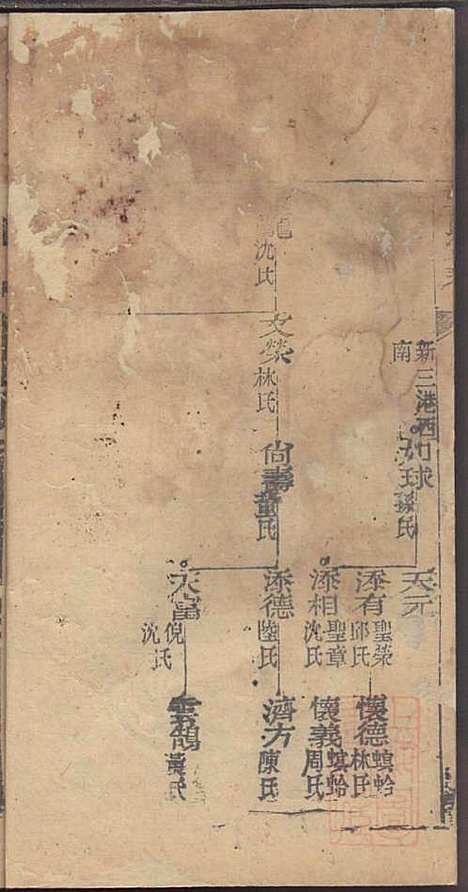 新三港西
南
球
孫氏
天元
添有
聖榮
邱氏
懷德
螟蛉
林氏
添相
聖章
沈氏
懷義
螟蛉
周氏
沈氏
文榮
林氏
尙壽
童氏
添德
陸氏
濟方
陳氏
天富
倪氏
沈氏
雲鵠
黃氏